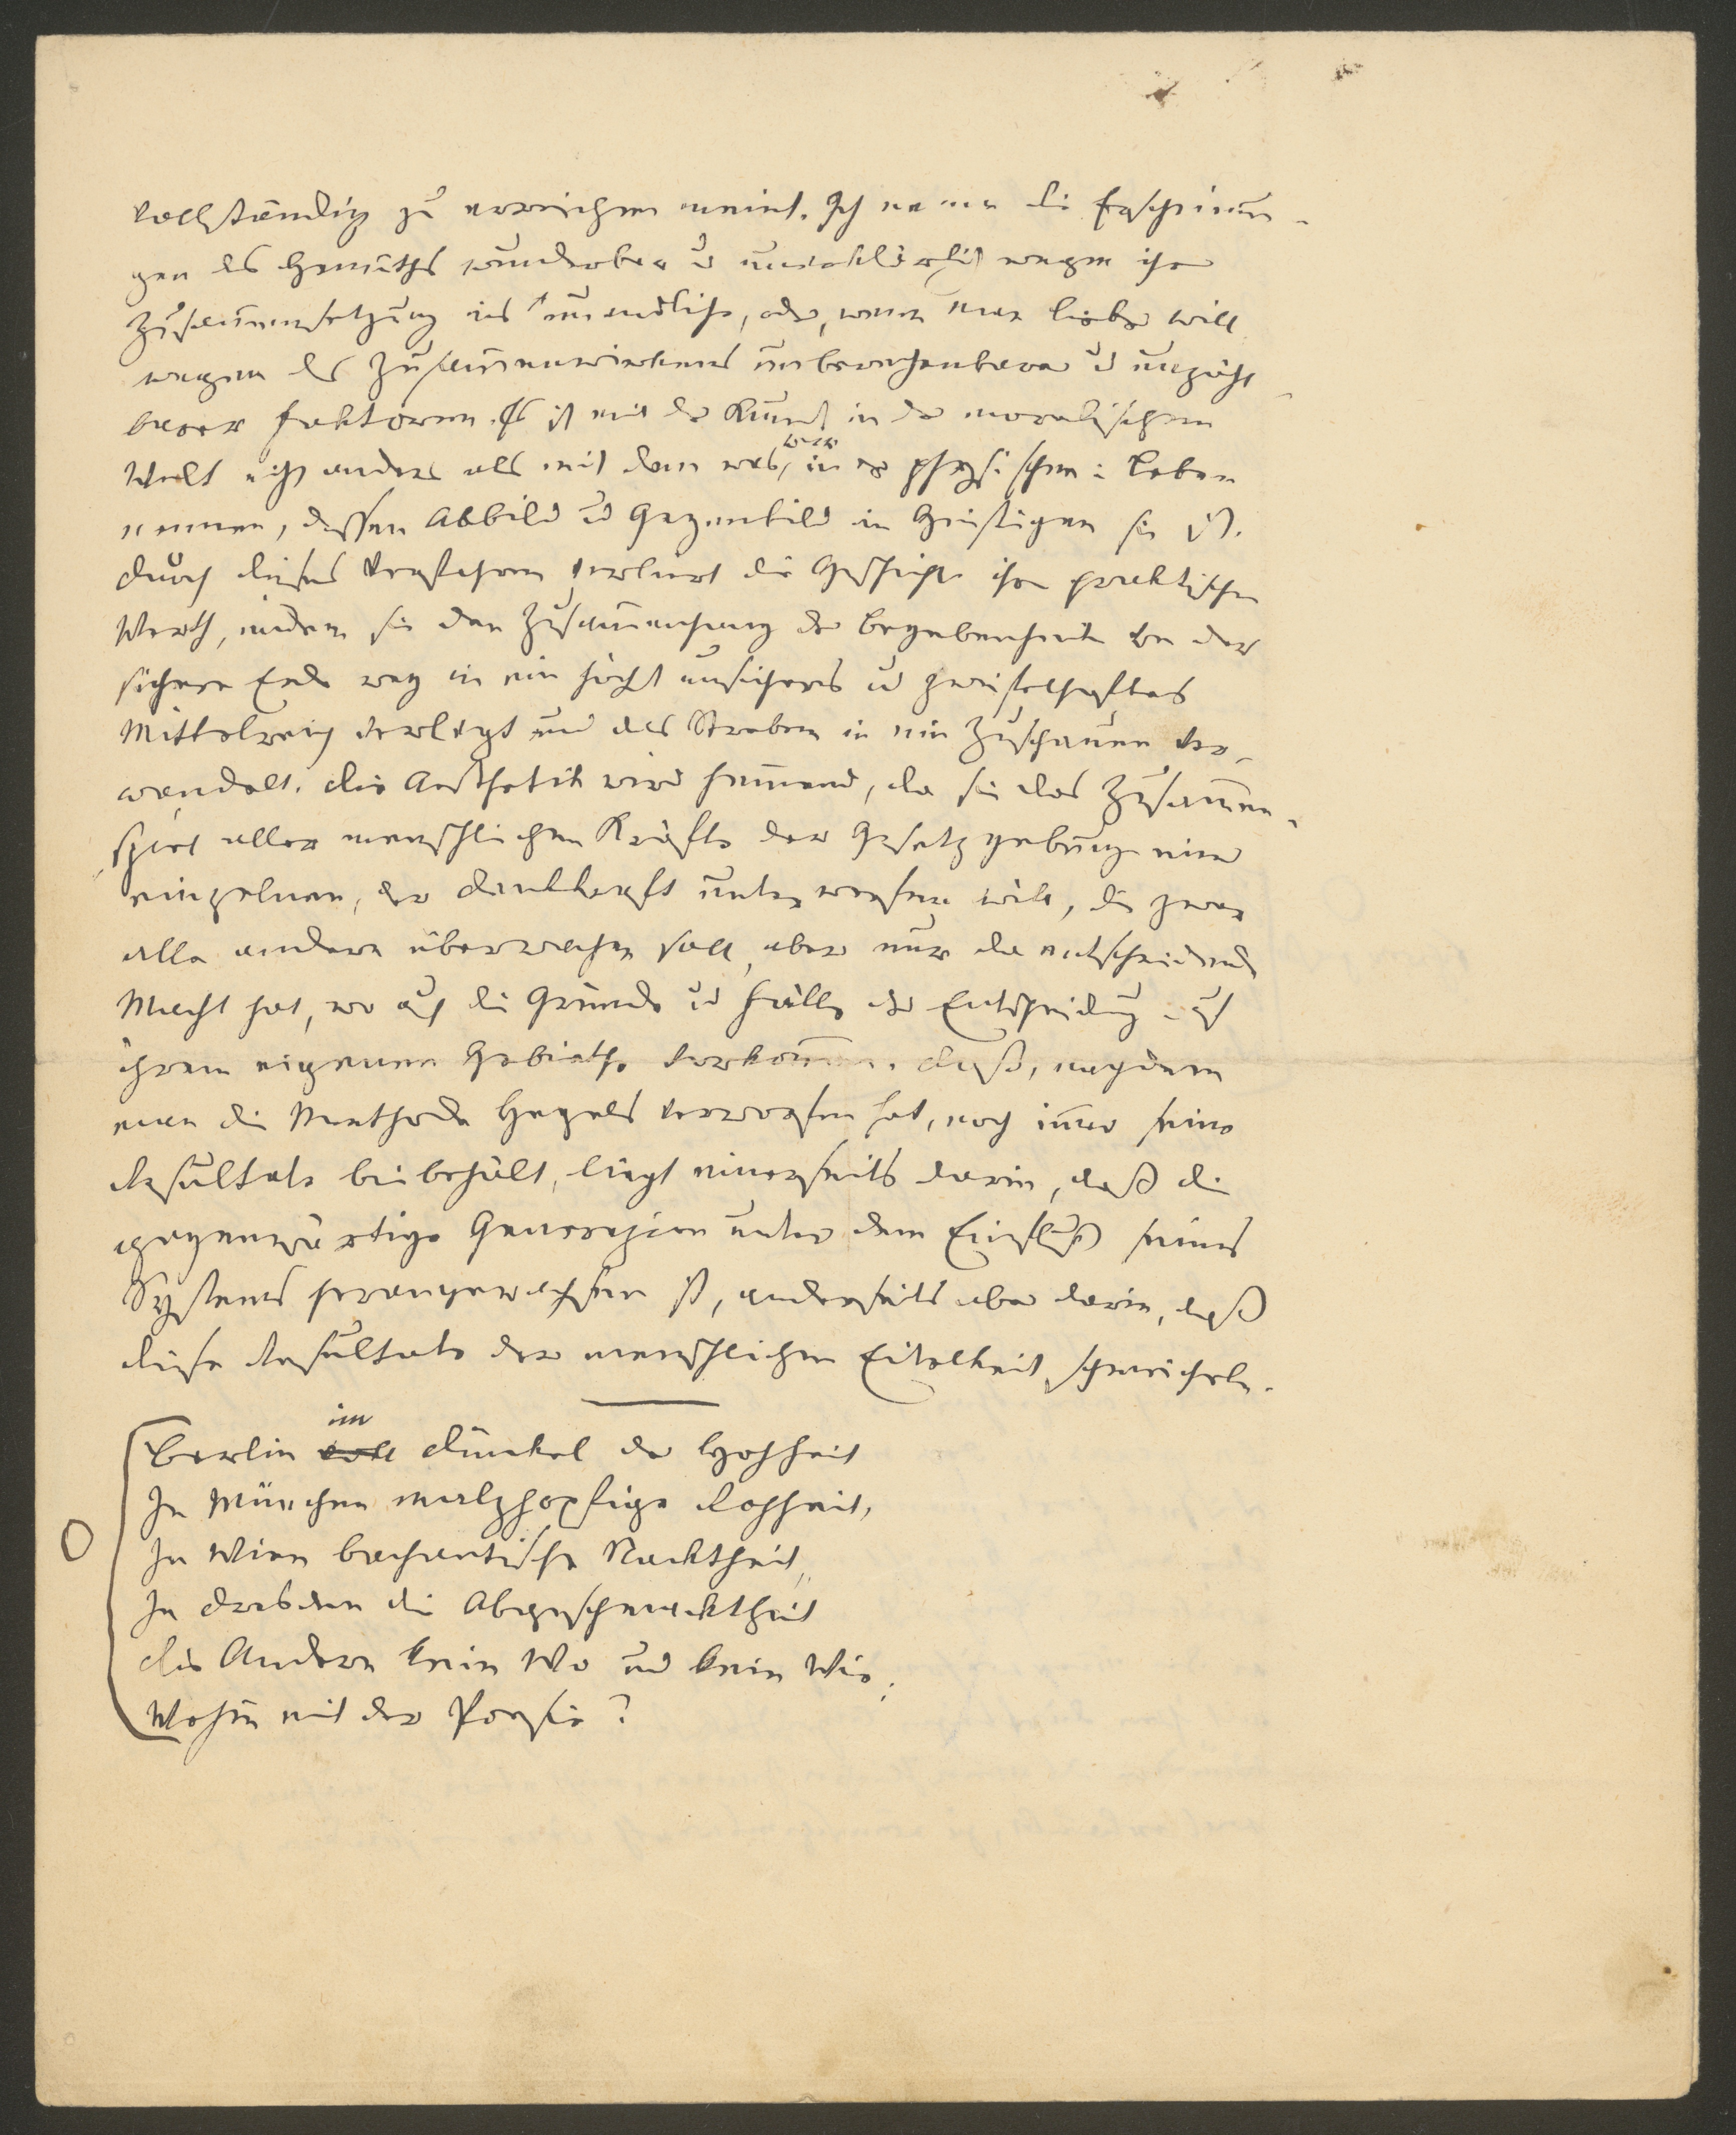 vollständig zu erreichen meint. Ich nenne die Erscheinun-
gen des Gemüths wunderbar u unerklärlich wegen ihrer
Zusammensetzung ins unendliche, oder, wenn man lieber will
wegen des Zusammenwirkens unberechenbarer u unzähl
barer Faktoren. Es ist mit der Kunst in der moralischen
Welt nicht anders als mit dem was wir in der physischen: Leben
nennen, dessen Abbild u Gegenbild im Geistigen sie ist.
Durch dieses Verfahren verliert die Geschichte ihren praktischen
Werth, indem sie den Zusammenhang der Begebenheiten von der
sichern Erde weg in ein höchst unsicheres u zweifelhaftes
Mittelreich verlegt und das Streben in ein Zuschauen ver-
wandelt. Die Aesthetik wird hemmend, da sie das Zusammen-
spiel aller menschlichen Kräfte der Gesetzgebung einer
einzelnen, der Denkkraft unterwerfen will, die zwar
alle andern überwachen soll, aber nur da entscheidende
Macht hat, wo auch die Gründe u Fälle der Entscheidung auf
ihrem eigenen Gebiethe vorkommen. Daß, nachdem
man die Methode Hegels verworfen hat, noch immer seine
Resultate beibehält, liegt einerseits darin, daß die
gegenwärtige Generazion unter dem Einfluß seines
Systems herangewachsen ist, anderseits aber darin, daß
diese Resultate der menschlichen Eitelkeit schmeicheln.
Berlin im Dünkel der Hohheit
In München malzhopfige Rohheit,
In Wien bachantische Nacktheit,
In Dresden die Abgeschmacktheit
Die Andern kein Wo und kein Wie;
Wohin mit der Poesie?